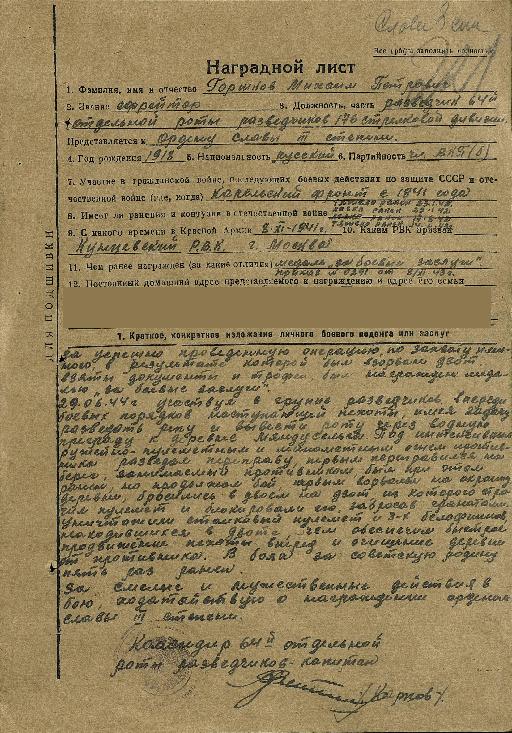 Славы 3 степ
Все графы заполнять полностью
Наградной лист
1. Фамилия, имя и отчество Горшков Михаил Петрович
2. Звание ефрейтор 3. Должность, часть разведчик 64й
отдельной роты разведчиков 176 стрелковой дивизии
Представляется к Ордену Славы III степени.
4. Год рождения 1918 5. Национальность русский 6. Партийность чл. ВКП(б)
7. Участие в гражданской войне, последующих боевых действиях по защите СССР и отече-
чественной войне (где, когда) Карельский фронт с 1941 года
8. Имеет ли ранения и контузии в отечественной войне
9. С какого времени в Красной Армии 8-XI-1941г. 10. Каким РВК призван
Кунцевский Р.В.К. г. Москва
11. Чем ранее награжден (за какие отличия) медаль "за боевые заслуги"
приказ №0291 от 8/III 43г.
12. Постоянный домашний адрес представляемого к награждению и адрес его семьи
ДЛЯ ПОДШИВКИ
1. Краткое, конкретное изложение личного боевого подвига или заслуг
За успешно проведенную операцию, по захвату плен-
ного, в результате которой был взорван дзот
взяты документы и трофеи был награжден меда-
лью "за боевые заслуги".
29.06.44г участвуя в группе разведчиков, впереди
боевых порядков наступающей пехоты, имея задачу
разведать реку и вывести роту через водную
преграду к деревне Мяндусельга. Под интенсивным
ружейно-пулеметным и минометным огнем против-
ника разведал переправу, первым переправился на
берег, занимаемый противником был при этом
ранен, но продолжал бой первым ворвался на окраину
деревни, бросились вдвоем на дзот из которого стро-
чил пулемет и блокировали его, забросав гранатами.
Уничтожили станковый пулемет и 3-х белофиннов
находившихся в дзоте, чем обеспечили быстрое
продвижение пехоты вперед и очищение деревни
от противника. В боях за советскую родину
пять раз ранен.
За смелые и мужественные действия в
бою ходатайствую о награждении орденом
славы III степени.
Командир 64й отдельной
роты разведчиков - капитан
/Карпов/.